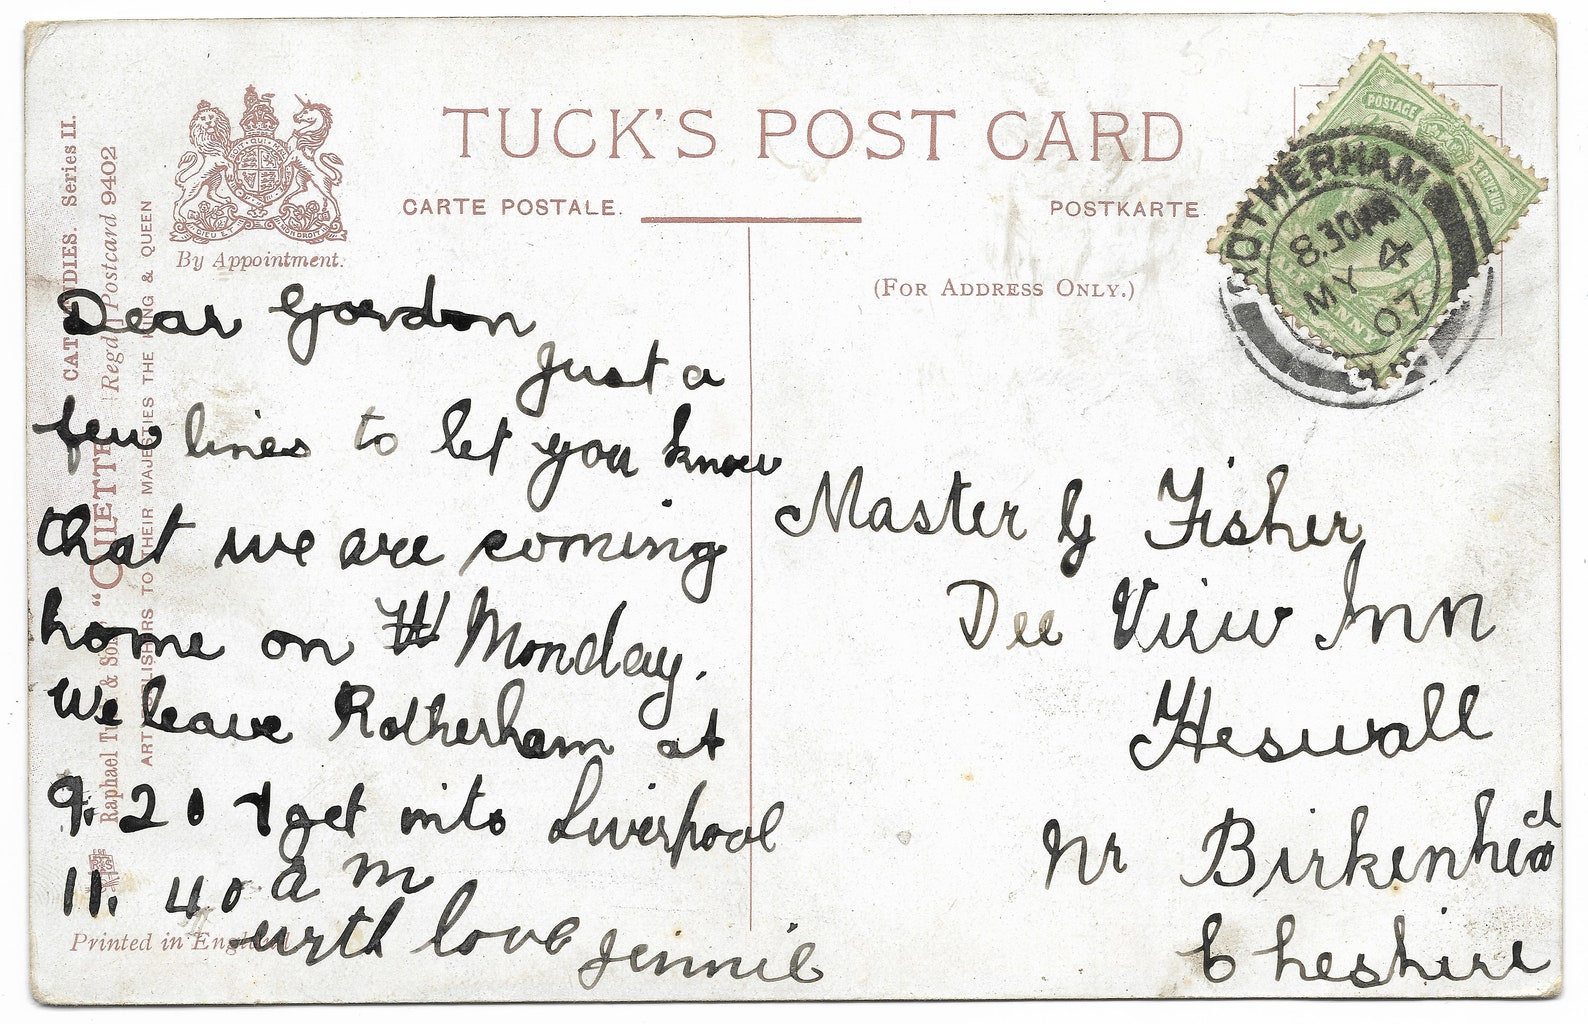 TUCK'S POST CARD
CARTE POSTALE.
POSTKARTE
By Appointment.
(FOR ADDRESS ONLY.)
CAT STUDIES. Series II.
Raphael Tuck & Sons' "OILETTE" [Regd.] Postcard 9402
ART PUBLISHERS TO THEIR MAJESTIES THE KING & QUEEN
Printed in England
POSTAGE
& REVENUE
HALFPENNY
ROTHERHAM
8.30 PM
MY 4
07
Dear Gordon
Just a
few lines to let you know
that we are coming
home on Monday.
We leave Rotherham at
9.20 & get into Liverpool
11.40 a m
with love Jennie
Master G Fisher
Dee View Inn
Heswall
Nr Birkenhead
Cheshire